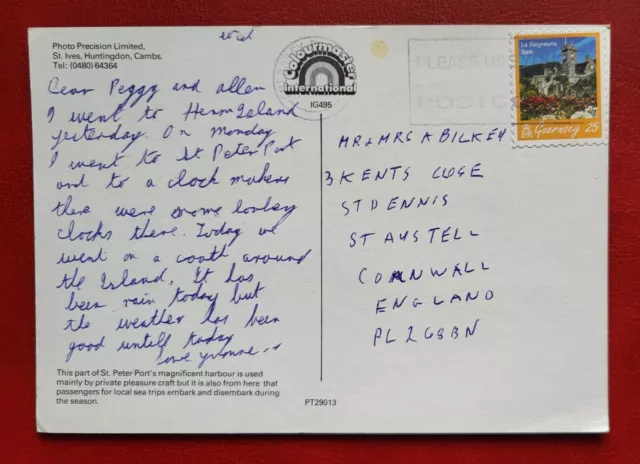 wed
Photo Precision Limited,
St. Ives, Huntingdon, Cambs.
Tel: (0480) 64364
Dear Peggy and allen
I went to Herm Island
yesterday. On Monday
I went to St Peter Port
and to a clock makers
there were some lovley
clocks there. Today we
went on a coath around
the Island, It has
been rain today but
the weather has been
good untill today
love yvonne
This part of St. Peter Port's magnificent harbour is used
mainly by private pleasure craft but it is also from here that
passengers for local sea trips embark and disembark during
the season.
Colourmaster
International
IG495
PT29013
PLEASE USE
POSTCO
La Seigneurie
Sark
Guernsey 25
MR & MRS A BILKEY
3 KENTS CLOSE
ST DENNIS
ST AUSTELL
CORNWALL
ENGLAND
PL2 68BN